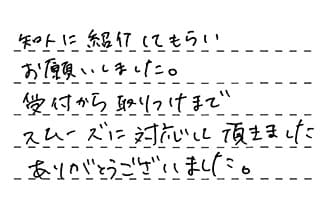 知人に紹介してもらい
お願いしました。
受付から取りつけまで
スムーズに対応して頂きました
ありがとうございました。